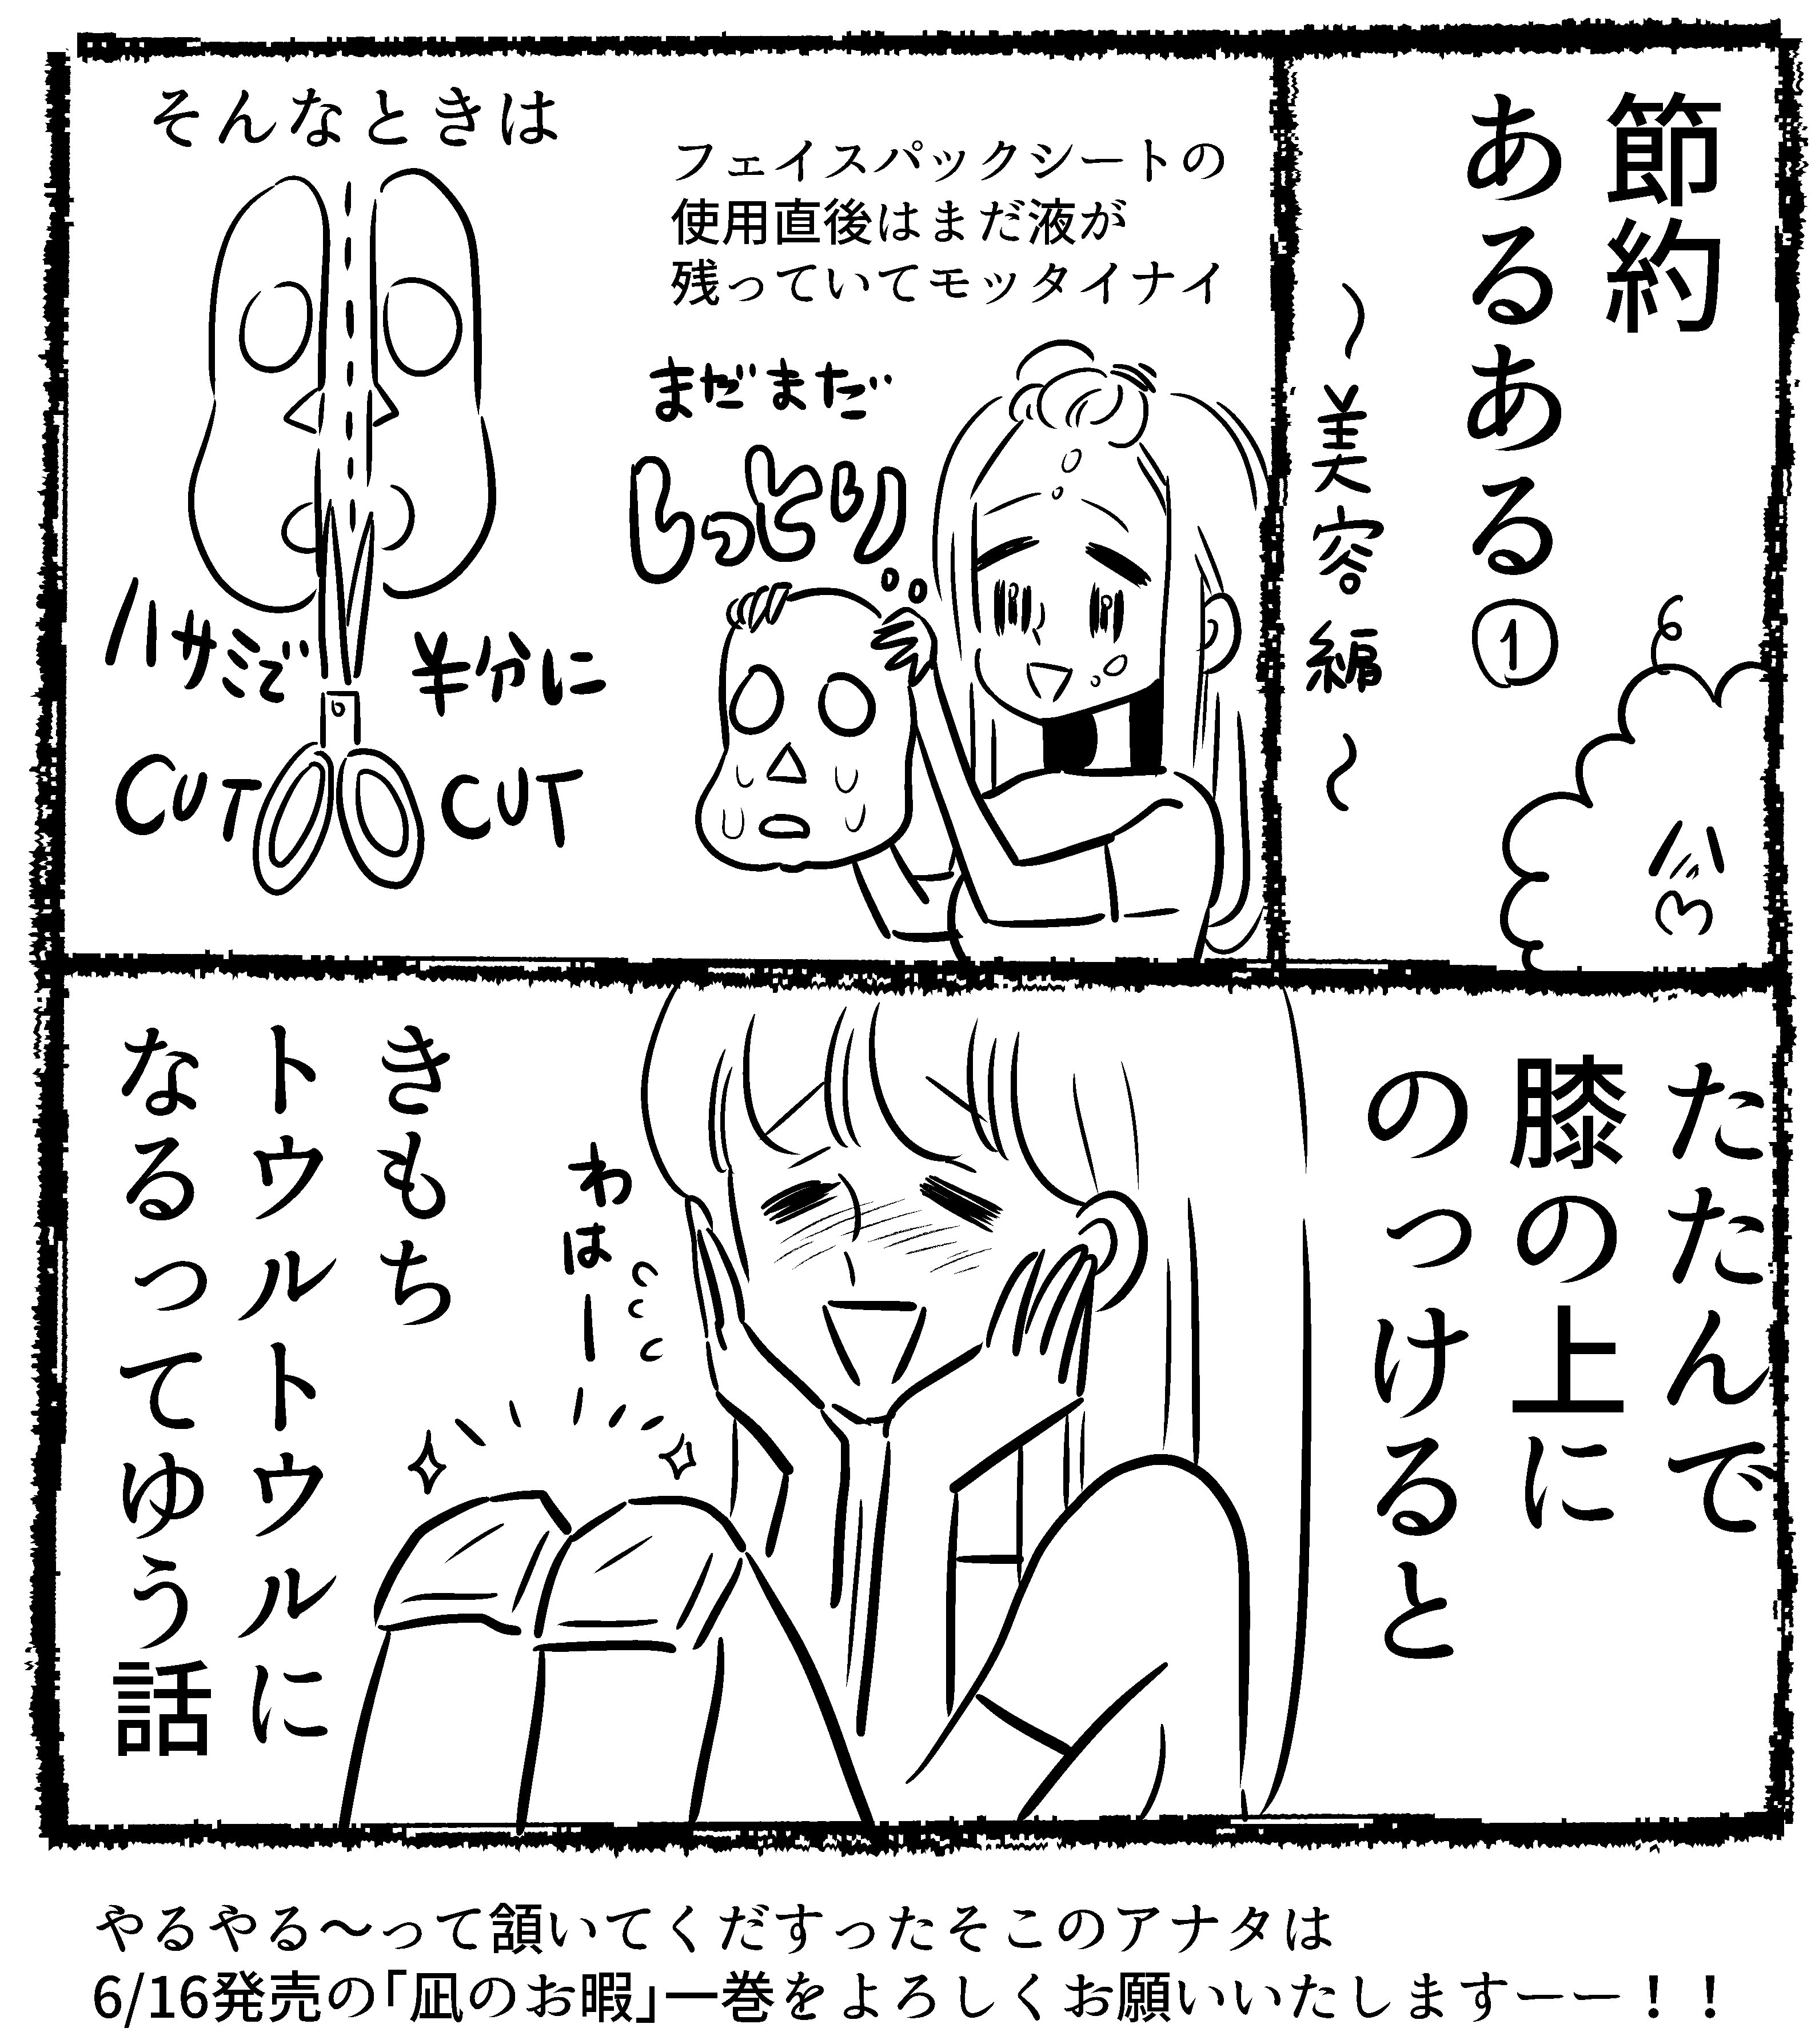 節約
あるある①
～美容編～
フェイスパックシートの
使用直後はまだ液が
残っていてモッタイナイ
まだまだ
しっとり
そんなときは
ハサミで
半分に
CUT
CUT
たたんで
膝の上に
のっけると
わはー
きもち
トウルトウルに
なるってゆう話
やるやる～って頷いてくだすったそこのアナタは
6/16発売の「凪のお暇」一巻をよろしくお願いいたしますーー！！